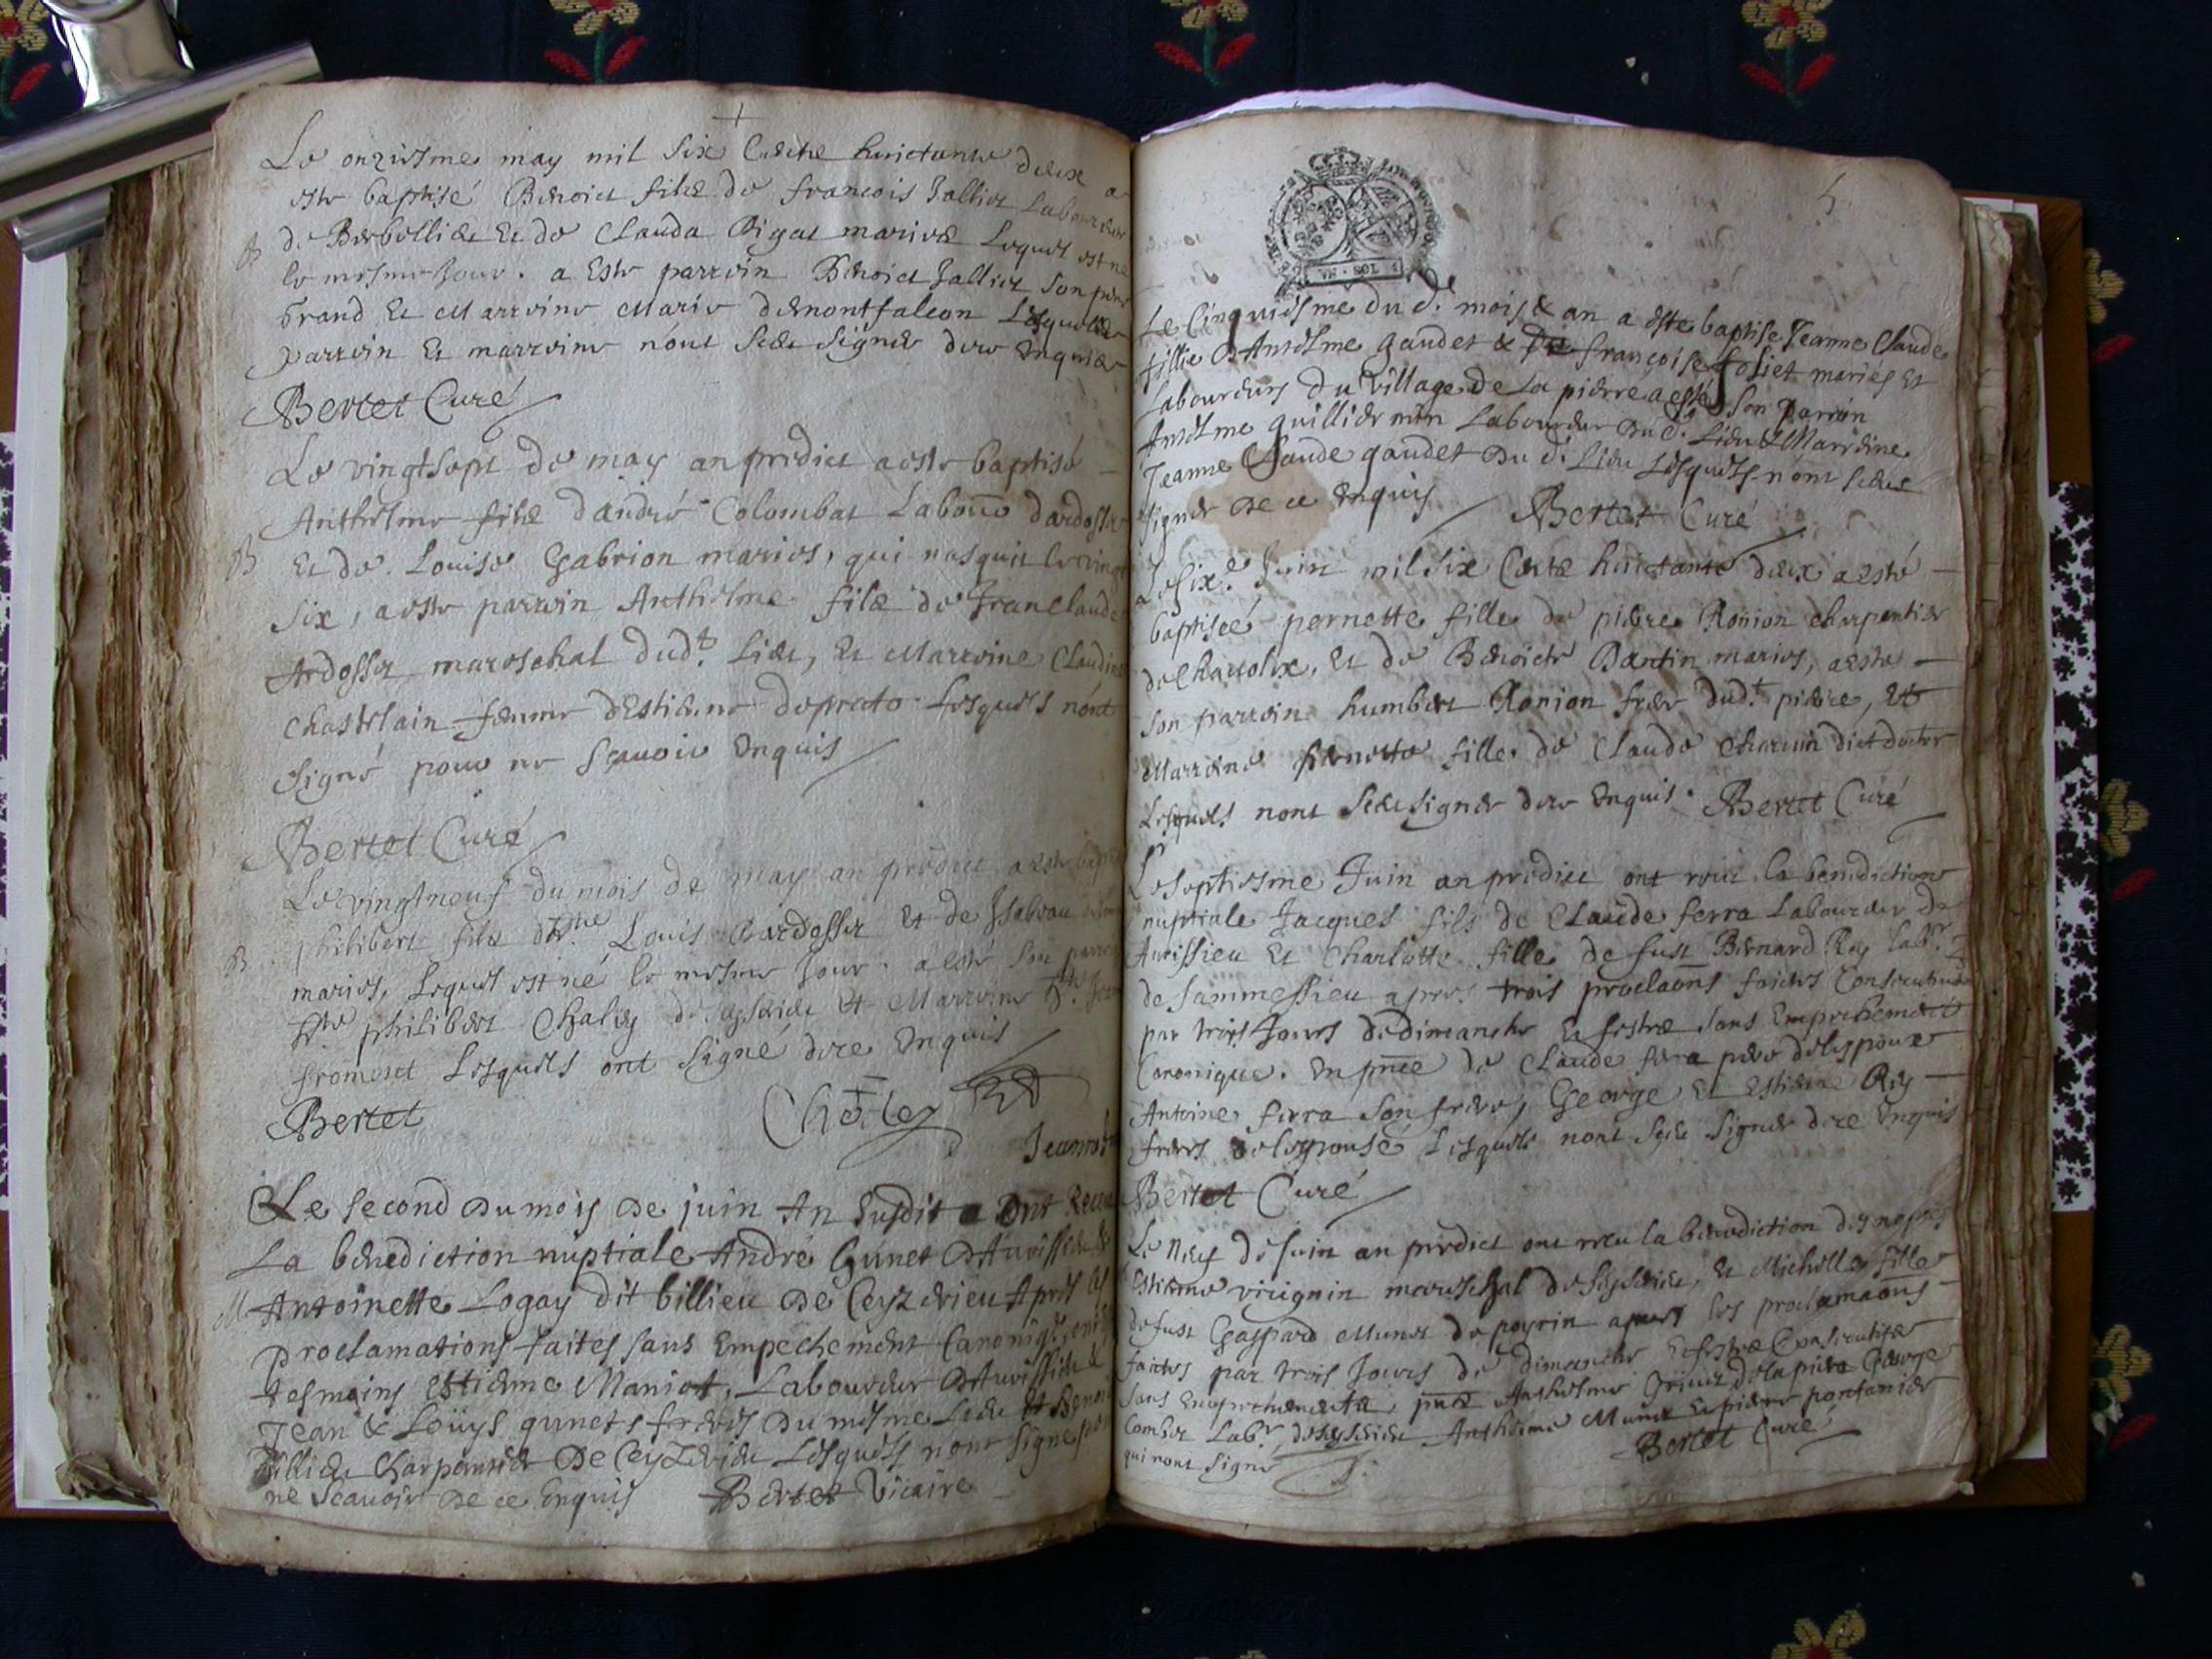 Le onziesme may mil six cents huictante deux a
este baptisé Benoict filz de francois Jallier Laboureur
de Barbollieu et de Clauda Rigat mariez Lequel est né
B
le mesme Jour . a este parrein Benoict Jallier son pere
Grand et Marreine Marie demontfalcon Lesquels
parrein et marreine nont sceu signer dece enquis
Bertet Curé
Le vingtsept de may an predict a este baptisé
Anthelme filz dandré Colombat Labour dardosset
B
et de Louise Gabrion mariés, qui nasquit le vingt
six, a este parrein Anthelme filz de Jranclaude
Ardosset mareschal dudt. Lieu, et Marreine Claudine
Chastelain femme dEstienne deprato Lesquels nont
signé pour ne sçavoir enquis
Bertet Curé
Le vingtneuf du mois de may an predict a este
philibert filz Louis dardosset et de Jsabeau
B
mariés, Lequel est né le mesme Jour. a esté son
philibert Chaley de et Marreine
froment Lesquels ont signé dece enquis
Bertet
Chaley
Le second Du mois De juin An susdit ont Receu
La benediction nuptiale André Gunet D'Avrissieu
M
Antoinette Logay dit billieu De Ceyzerieu Apres les
proclamations faites sans Empechement Canonig.
tesmoins Estienne Maniot, Laboureur D'Avrissieu &
Jean & Loüys gunets freres Du mesme Lieu et
billieu Charpentier De Ceyzerieu Lesquels nont signe
ne scavoir De ce Enquis Bertet Vicaire
VN · SOL
5
Le Cinquiesme du d. mois & an a esté baptise Jeanne Claude
fillie D'Antelme gaudet & françoise foliet mariés et
Laboureurs Du village de La pierre a esté son parrin
Antelme quilliermin Laboureur Du d. Lieu & Marreine
Jeanne Claude gaudet Du d. Lieu Lesquels nont sceu
signer De ce enquis Bertet Curé
Le six.e Juin mil six cents huictante deux a esté
baptiseé pernette fille de pierre Ronion charpentier
de et de Benoicte Dantin mariés, a este
son parrein humbert Ronion frere dudt. pierre, et
Marreine pernette fille de Claude Charuin dict
Lesquels nont sceu signer dece enquis. Bertet Curé
Le septiesme Juin an predict ont receu la benediction
nuptiale Jacques fils de Claude ferra Laboureur de
Avrissieu et Charlotte fille de fust Bernard Rey labr.
de sammessieu apres trois proclaõns faictes Consecutives
par trois Jours de dimanche et festes sans Empechement
Canonique. en pñce de Claude ferra pere delespoux
Antoine ferra son frere, George et Estienne Rey
freres delespousé Lesquels nont sceu signer dece enquis
Bertet Curé
Le neuf de Juin an predict ont receu la benediction des nopces
Estienne virignin mareschal de et Michelle fille
de fust Gaspard Munet de poyrin apres les proclamaõns
faictes par trois Jours de dimanche et festes Consecutifs
sans empechements, pñts Anthelme delapiera George
Combet Labr. Anthelme Munet et pierre pontanier
qui nont signé Bertet Curé